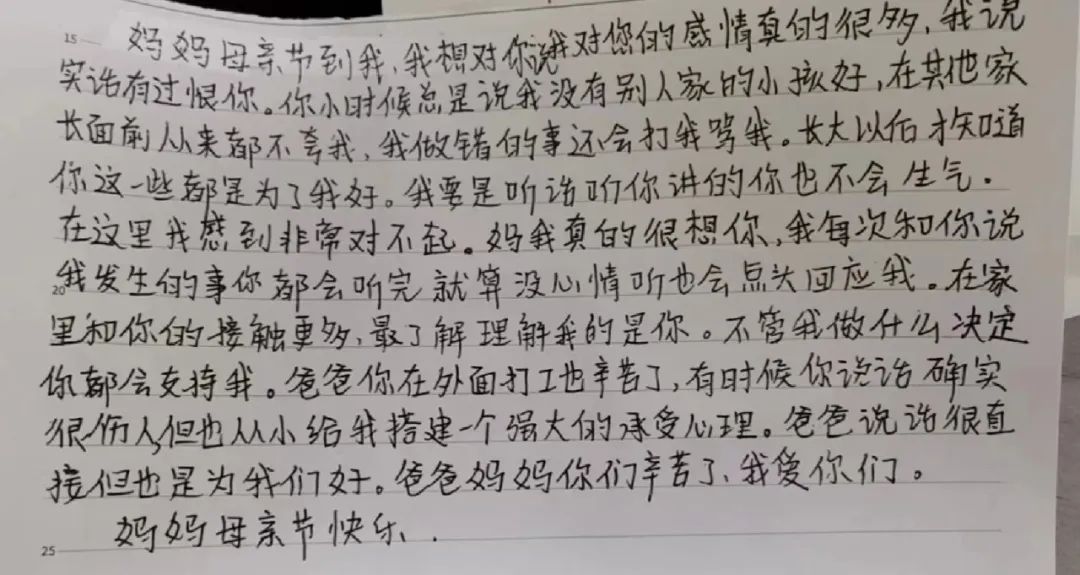 15
妈妈母亲节到我,我想对你说我对您的感情真的很多,我说
实话有过恨你。你小时候总是说我没有别人家的小孩好,在其他家
长面前从来都不夸我,我做错的事还会打我骂我。长大以后才知道
你这一些都是为了我好。我要是听话听你讲的你也不会生气.
在这里我感到非常对不起。妈我真的很想你,我每次和你说
20
我发生的事你都会听完就算没心情听也会点头回应我。在家
里和你的接触更多,最了解理解我的是你。不管我做什么决定
你都会支持我。爸爸你在外面打工也辛苦了,有时候你说话确实
很伤人,但也从小给我搭建一个强大的承受心理。爸爸说话很直
接但也是为我们好。爸爸妈妈你们辛苦了、我爱你们。
妈妈母亲节快乐.
25